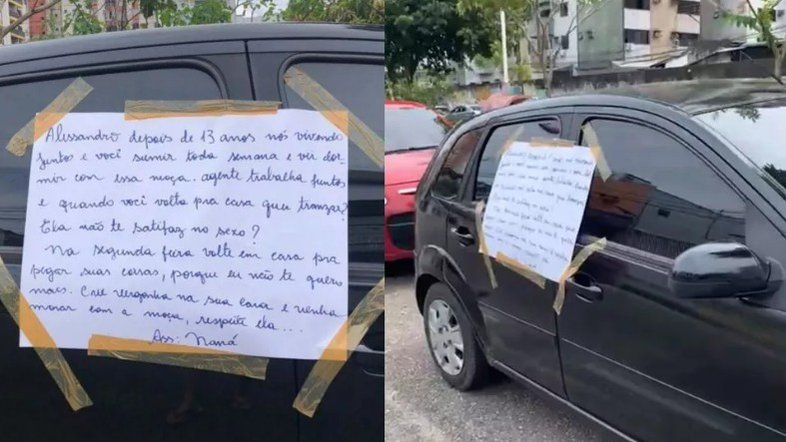 Alissandro depois de 13 anos nós vivendo
junto e você sumir toda semana e vir dor
mir com essa moça. agente trabalha juntos
e quando você volta pra casa quer tranzar?
Ela não te satifaz no sexo?
Na segunda feira volte em casa pra
pegar suas coisas, porque eu não te quero
mais. Crie vergonha na sua cara e venha
morar com a moça, respeite ela...
Ass: Naná